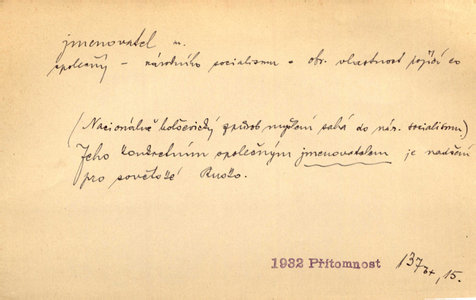 jmenovatel m.
společný – národního socialismu – obr. vlastnost pojící co
(Nacionálně bolševický způsob myšlení sahá do nár. socialismu)
Jeho konkretním společným jmenovatelem je nadšení
pro sovětské Rusko.
1932 Přítomnost 137, 15.